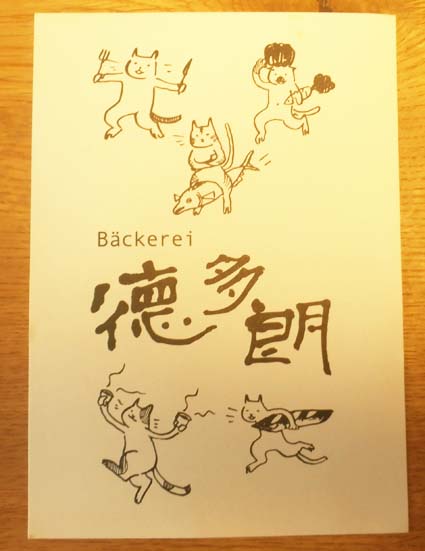 Bäckerei
徳多朗